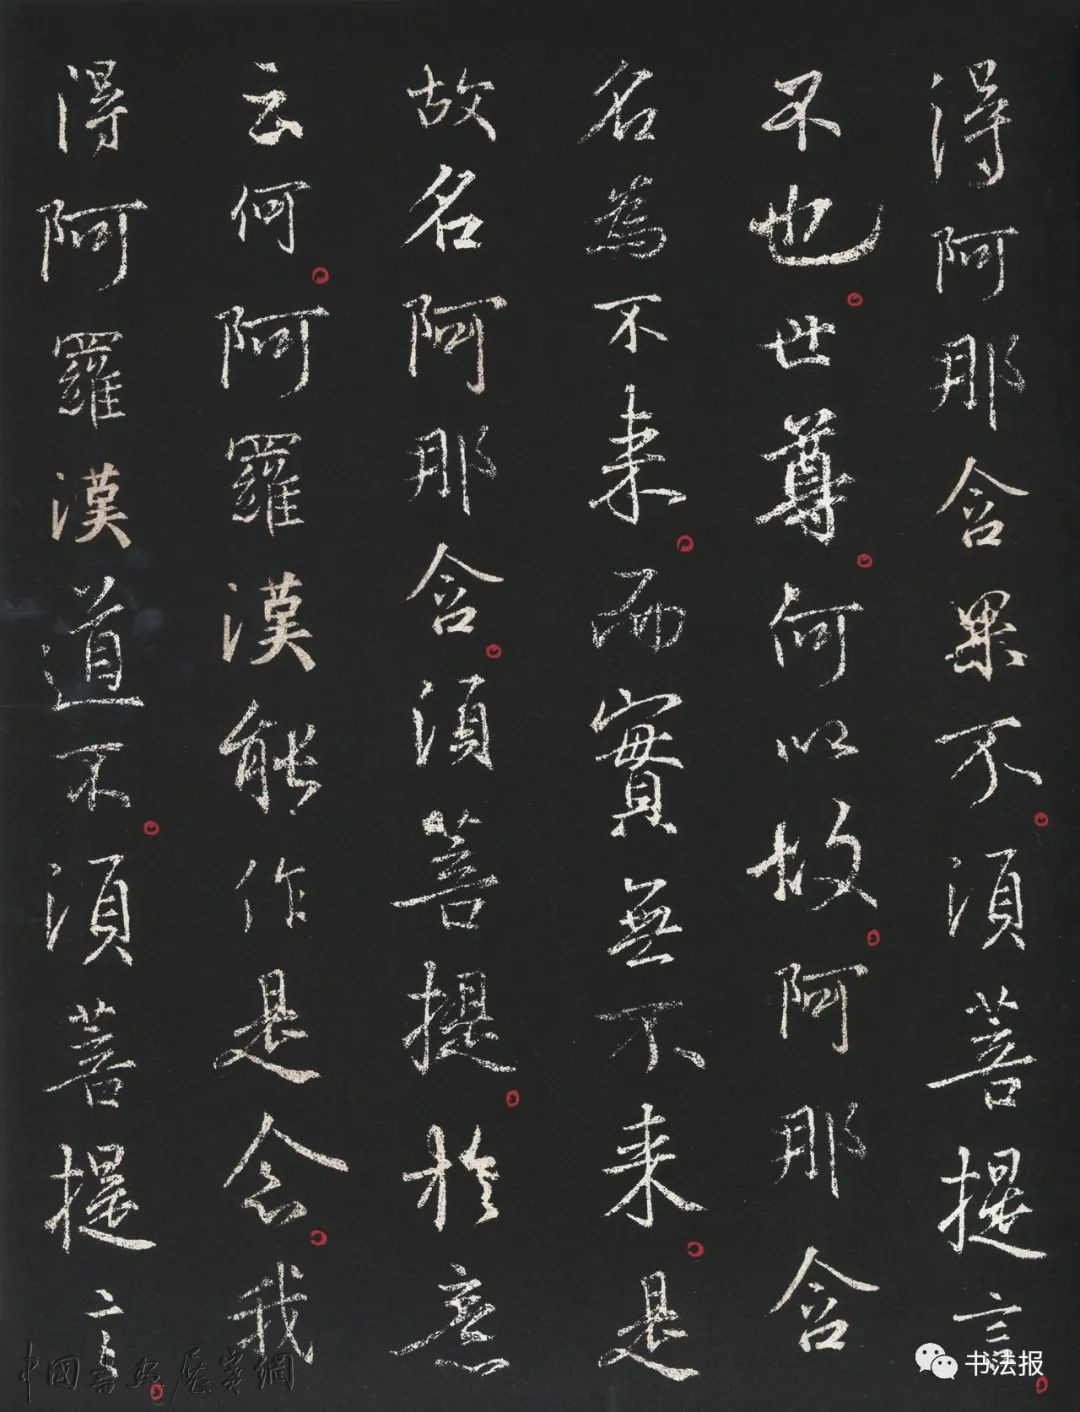 得阿那含果不須菩提言
不也世尊何以故阿那含
名為不来而實無不来是
故名阿那含須菩提於意
云何阿羅漢能作是念我
得阿羅漢道不須菩提言
中國書畫展賞網
书法报